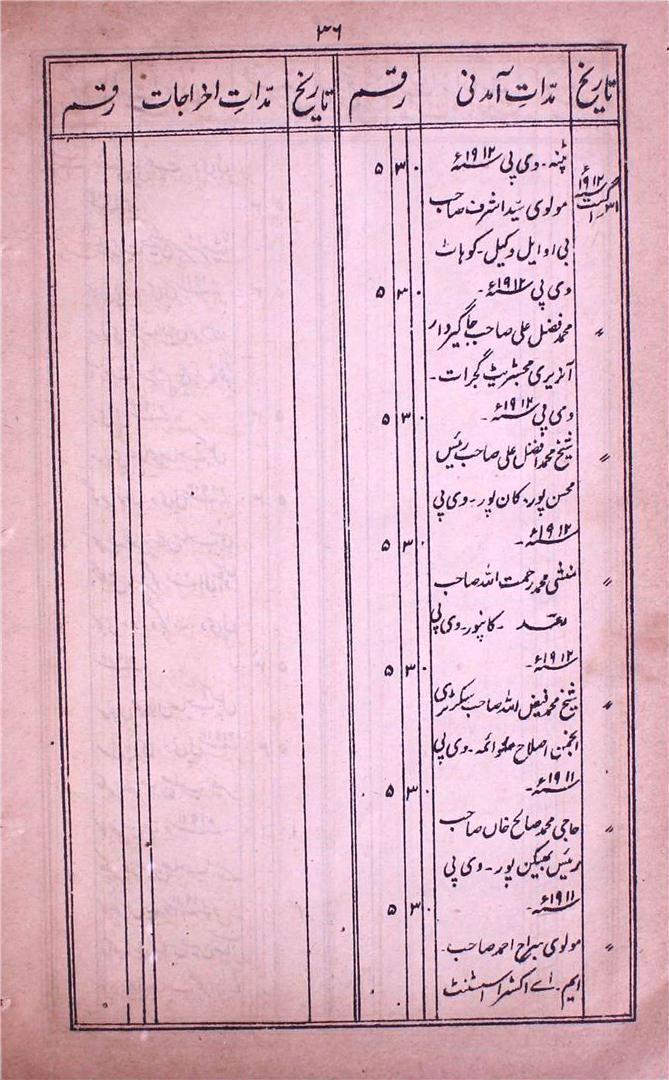 ۳۶
تاریخ مدّاتِ آمدنی رقم تاریخ مدّاتِ اخراجات رقم
۳۱ اگست ۱۹۱۲ء پٹنہ۔ وی پی ۱۹۱۲ء ۰ ۳ ۵
مولوی سیّد اشرف صاحب
بی او ایل وکیل۔ کوہاٹ
وی پی ۱۹۱۲ء۔ ۰ ۳ ۵
〃 محمد فضل علی صاحب جاگیردار
آنریری مجسٹریٹ گجرات۔
وی پی ۱۹۱۲ء۔ ۰ ۳ ۵
〃 شیخ محمد افضل علی صاحب رئیس
محسن پور۔ کان پور۔ وی پی
۱۹۱۲ء۔ ۰ ۳ ۵
〃 منشی محمد رحمت اللہ صاحب
رعد ۔ کانپور۔ وی پی
۱۹۱۲ء۔ ۰ ۳ ۵
〃 شیخ محمد فیض اللہ صاحب سیکرٹری
انجمن اصلاح ۔ وی پی
۱۹۱۱ء۔ ۰ ۳ ۵
〃 حاجی محمد صالح خاں صاحب
رئیس بھیکن پور۔ وی پی
۱۹۱۱ء۔ ۰ ۳ ۵
〃 مولوی سراج احمد صاحب۔
ایم۔ اے اکسٹرا اسسٹنٹ